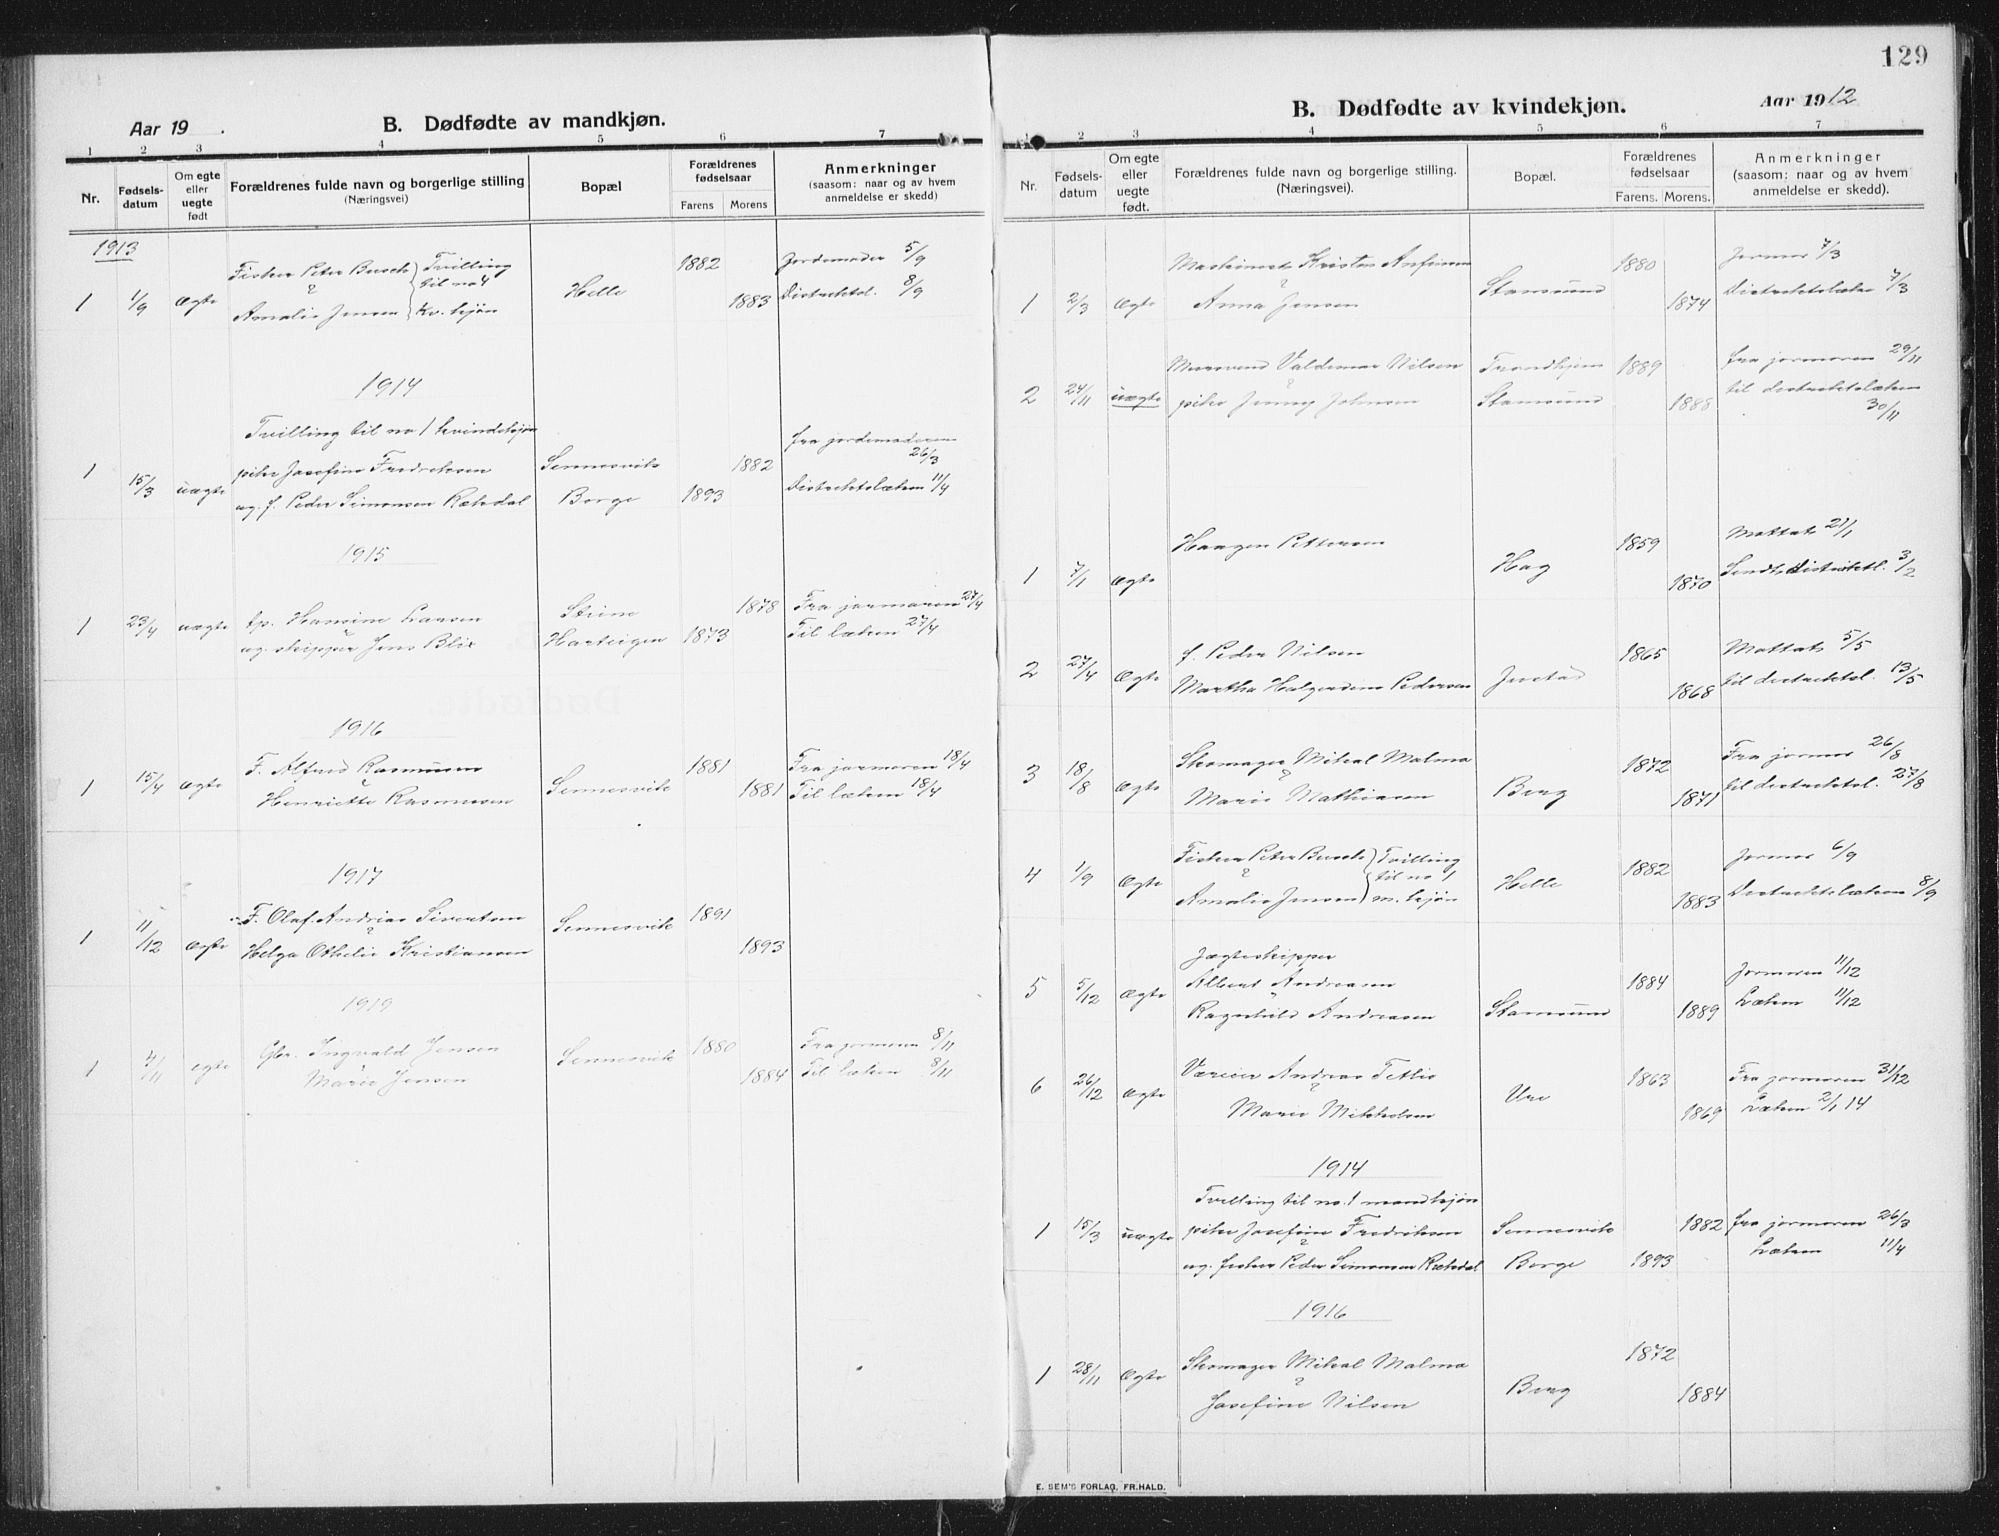 129
Aar 19 .
B. Dødfødte av mandkjøn.
1 2 3 4 5 6 7
Nr.
Fødsels-
datum
Om egte
eller
uegte
født
Forældrenes fulde navn og borgerlige stilling
(Næringsvei)
Bopæl
Forældrenes
fødselsaar
Farens Morens
Anmerkninger
(saasom: naar og av hvem
anmeldelse er skedd)
1913
1 1/9 Ægte
Fisker Peter Busch Tvilling
til no 4
Amalie Jensen kv. kjøn
Helle
1882
1883
Jordemoder 5/9
Distriktsl. 8/9
1914
Tvilling til no 1 kvindekjøn
1 15/3 uægte
pike Josefine Fredriksen
ug. f. Peder Simonsen
Sennesvik
Borge
1882
1893
fra jordemoderen
26/3
Distriktslægen 11/4
1915
1 23/4 uægte
tp. Hansine Larsen
ug. skipper Jens Blix
Steine
1878
1873
Fra jormoren 27/4
Til lægen 27/4
1916
1 15/4 ægte
F. Alfred Rasmussen
Henriette Rasmussen
Sennesvik
1881
1881
Fra jormoren 18/4
Til lægen 18/4
1917
1 11/12 ægte
F. Olaf Andrias Sivertsen
Helga Othelie Kristiansen
Sennesvik
1891
1893
1919
1 4/11 egte
Ingvald Jensen
Marie Jensen
Sennesvik
1880
1884
Fra jormoren 8/11
Til lægen 8/11
B. Dødfødte av kvindekjøn.
Aar 1912
1 2 3 4 5 6 7
Nr.
Fødsels-
datum
Om egte
eller
uegte
født.
Forældrenes fulde navn og borgerlige stilling.
(Næringsvei).
Bopæl.
Forældrenes
fødselsaar
Farens. Morens.
Anmerkninger
(saasom: naar og av hvem
anmeldelse er skedd).
1 2/3 Ægte
Maskinist Kristen Anfinsen
Anna Jensen
Stamsund
1880
1874
Jormor 7/3
Distriktslæge 7/3
2 24/11 uægte
Mursvend Valdemar Nilsen
pike Jenny Johnsen
Trondhjem
Stamsund
1889
1888
fra jormoren 29/11
til distriktslægen
30/11
1 7/1 Ægte
Haagen Pettersen
Hag
1859
1870
Mottat 21/1
Sendt distriktsl. 3/2
2 27/4 Ægte
f. Peder Nilsen
Martha Pedersen
1865
1868
Mottat 5/5
til distriktsl. 13/5
3 18/8 Ægte
Skomager Mikal Malmo
Marie Mathiasen
Berg
1872
1871
Fra jormor 26/8
til distriktsl. 27/8
4 1/9 Ægte
Fisker Peter Busch Tvilling
til no 1
Amalie Jensen m. kjøn
Helle
1882
1883
Jormor 6/9
Distriktslægen 8/9
5 5/12 Ægte
Jægteskipper
Albert Andreasen
Ragnhild Andreasen
Stamsund
1884
1889
Jormoren 11/12
Lægen 11/12
6 26/12 Ægte
Væreier Andreas Tetlie
Marie Mikkelsen
Ure
1863
1869
Fra jormoren 31/12
Lægen 2/1 14
1914
Tvilling til no. 1 mandkjøn
1 15/3 uægte
pike Josefine Fredriksen
ug. fisker Peder Simonsen
Sennesvik
Borge
1882
1893
fra jormoren 26/3
Lægen 11/4
1916
1 28/11 Ægte
Skomager Mikal Malmo
Josefine Nilsen
Berg
1872
1884
E. SEM'S FORLAG, FR.HALD.